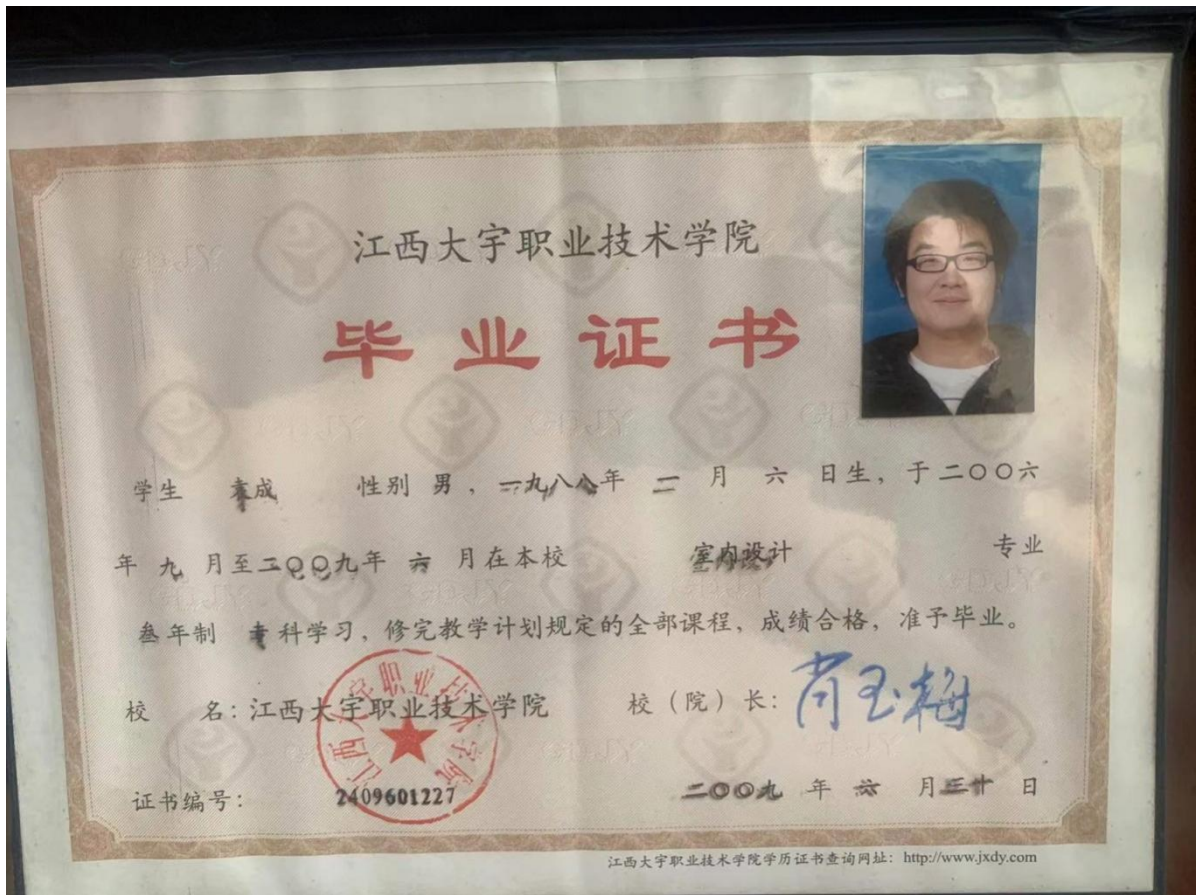 江西大宇职业技术学院
毕业证书
学生 袁成 性别 男，一九八八年 二 月 六 日生，于二〇〇六
年 九 月至二〇〇九年 六 月在本校 室内设计 专业
叁年制 专科学习，修完教学计划规定的全部课程，成绩合格，准予毕业。
校 名：江西大宇职业技术学院 校（院）长：肖玉梅
江西大宇职业技术学院
证书编号： 2409601227 二〇〇九 年 六 月三十 日
江西大宇职业技术学院学历证书查询网址：http://www.jxdy.com